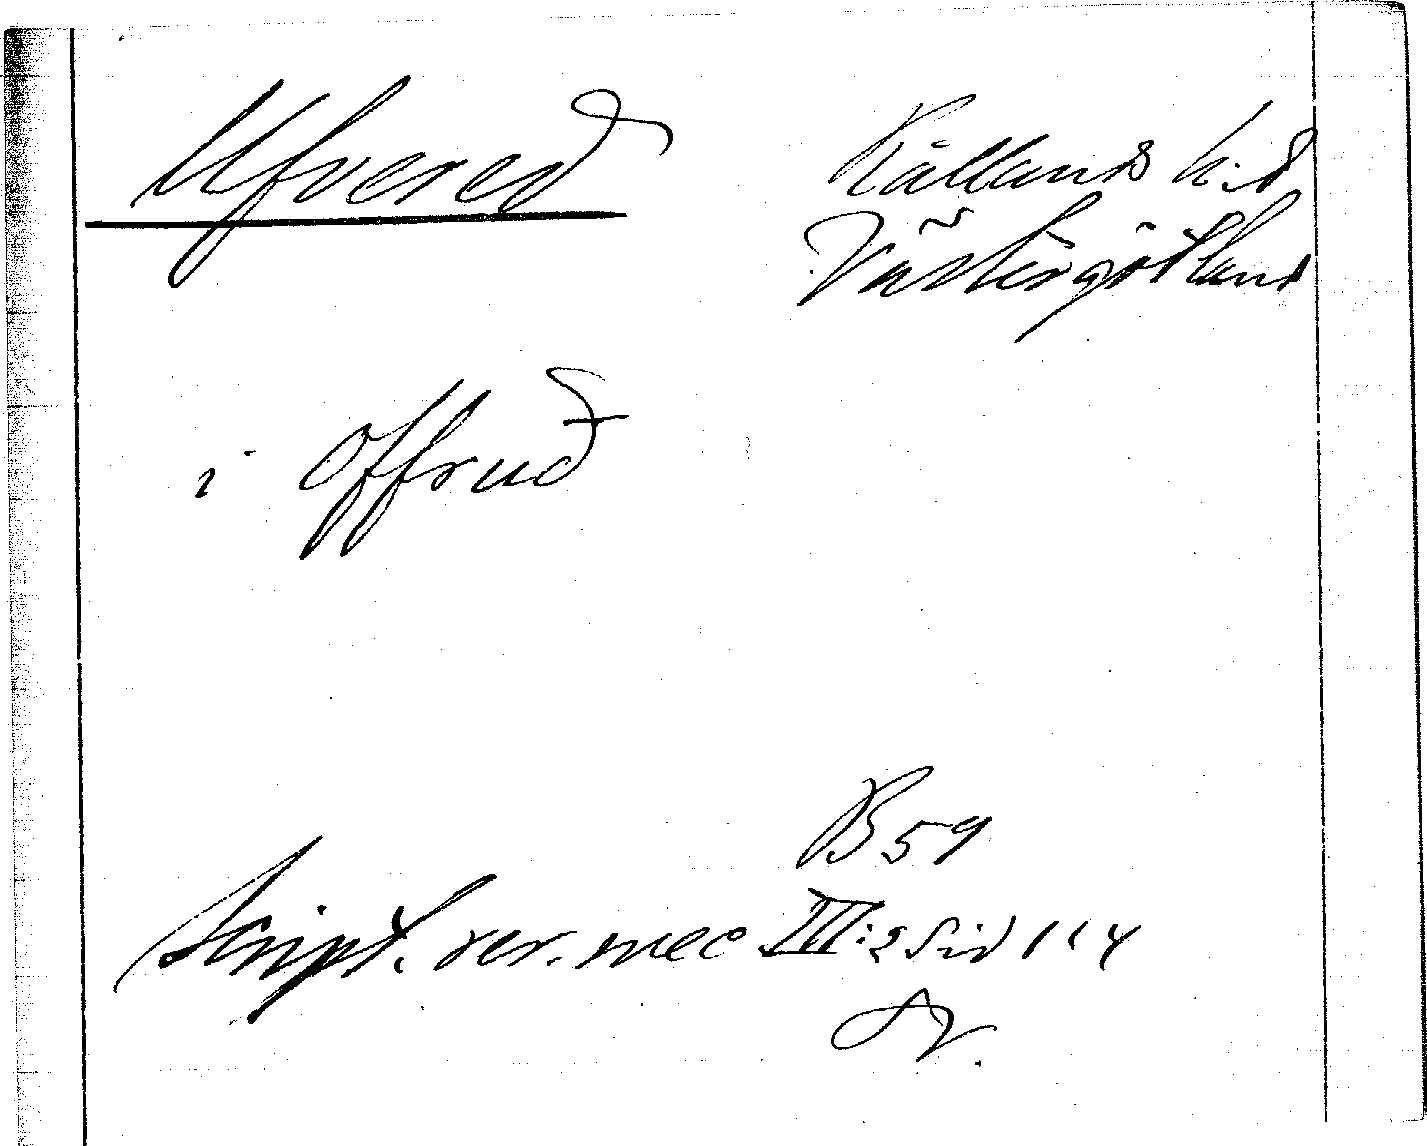 Ulfvered
Kållands h:d
Västergötland
i Offrud
B 59
Script. rer. svec III:2 Sid 114